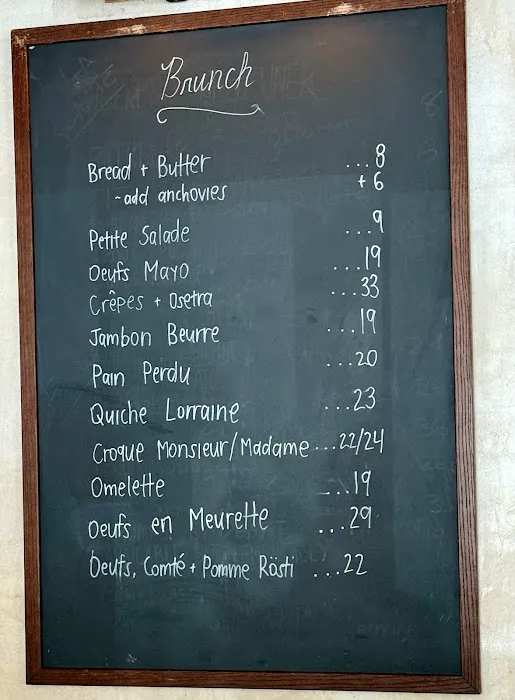 Brunch
Bread + Butter ...8
~add anchovies +6
Petite Salade ...9
Oeufs Mayo ...19
Crêpes + Osetra ...33
Jambon Beurre ...19
Pain Perdu ...20
Quiche Lorraine ...23
Croque Monsieur/Madame ...22/24
Omelette ...19
Oeufs en Meurette ...29
Oeufs, Comté + Pomme Rösti ...22